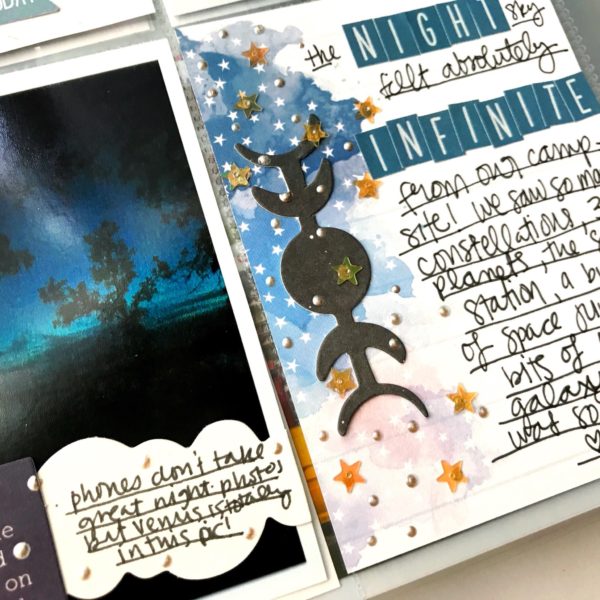 the NIGHT sky
felt absolutely
INFINITE
from our camp-
site! We saw so ma
constellations, 2
planets, the s
station, a bu
of space ju
bits of
galax
was so
phones don't take
great night photos
but Venus is totally
in this pic!
on